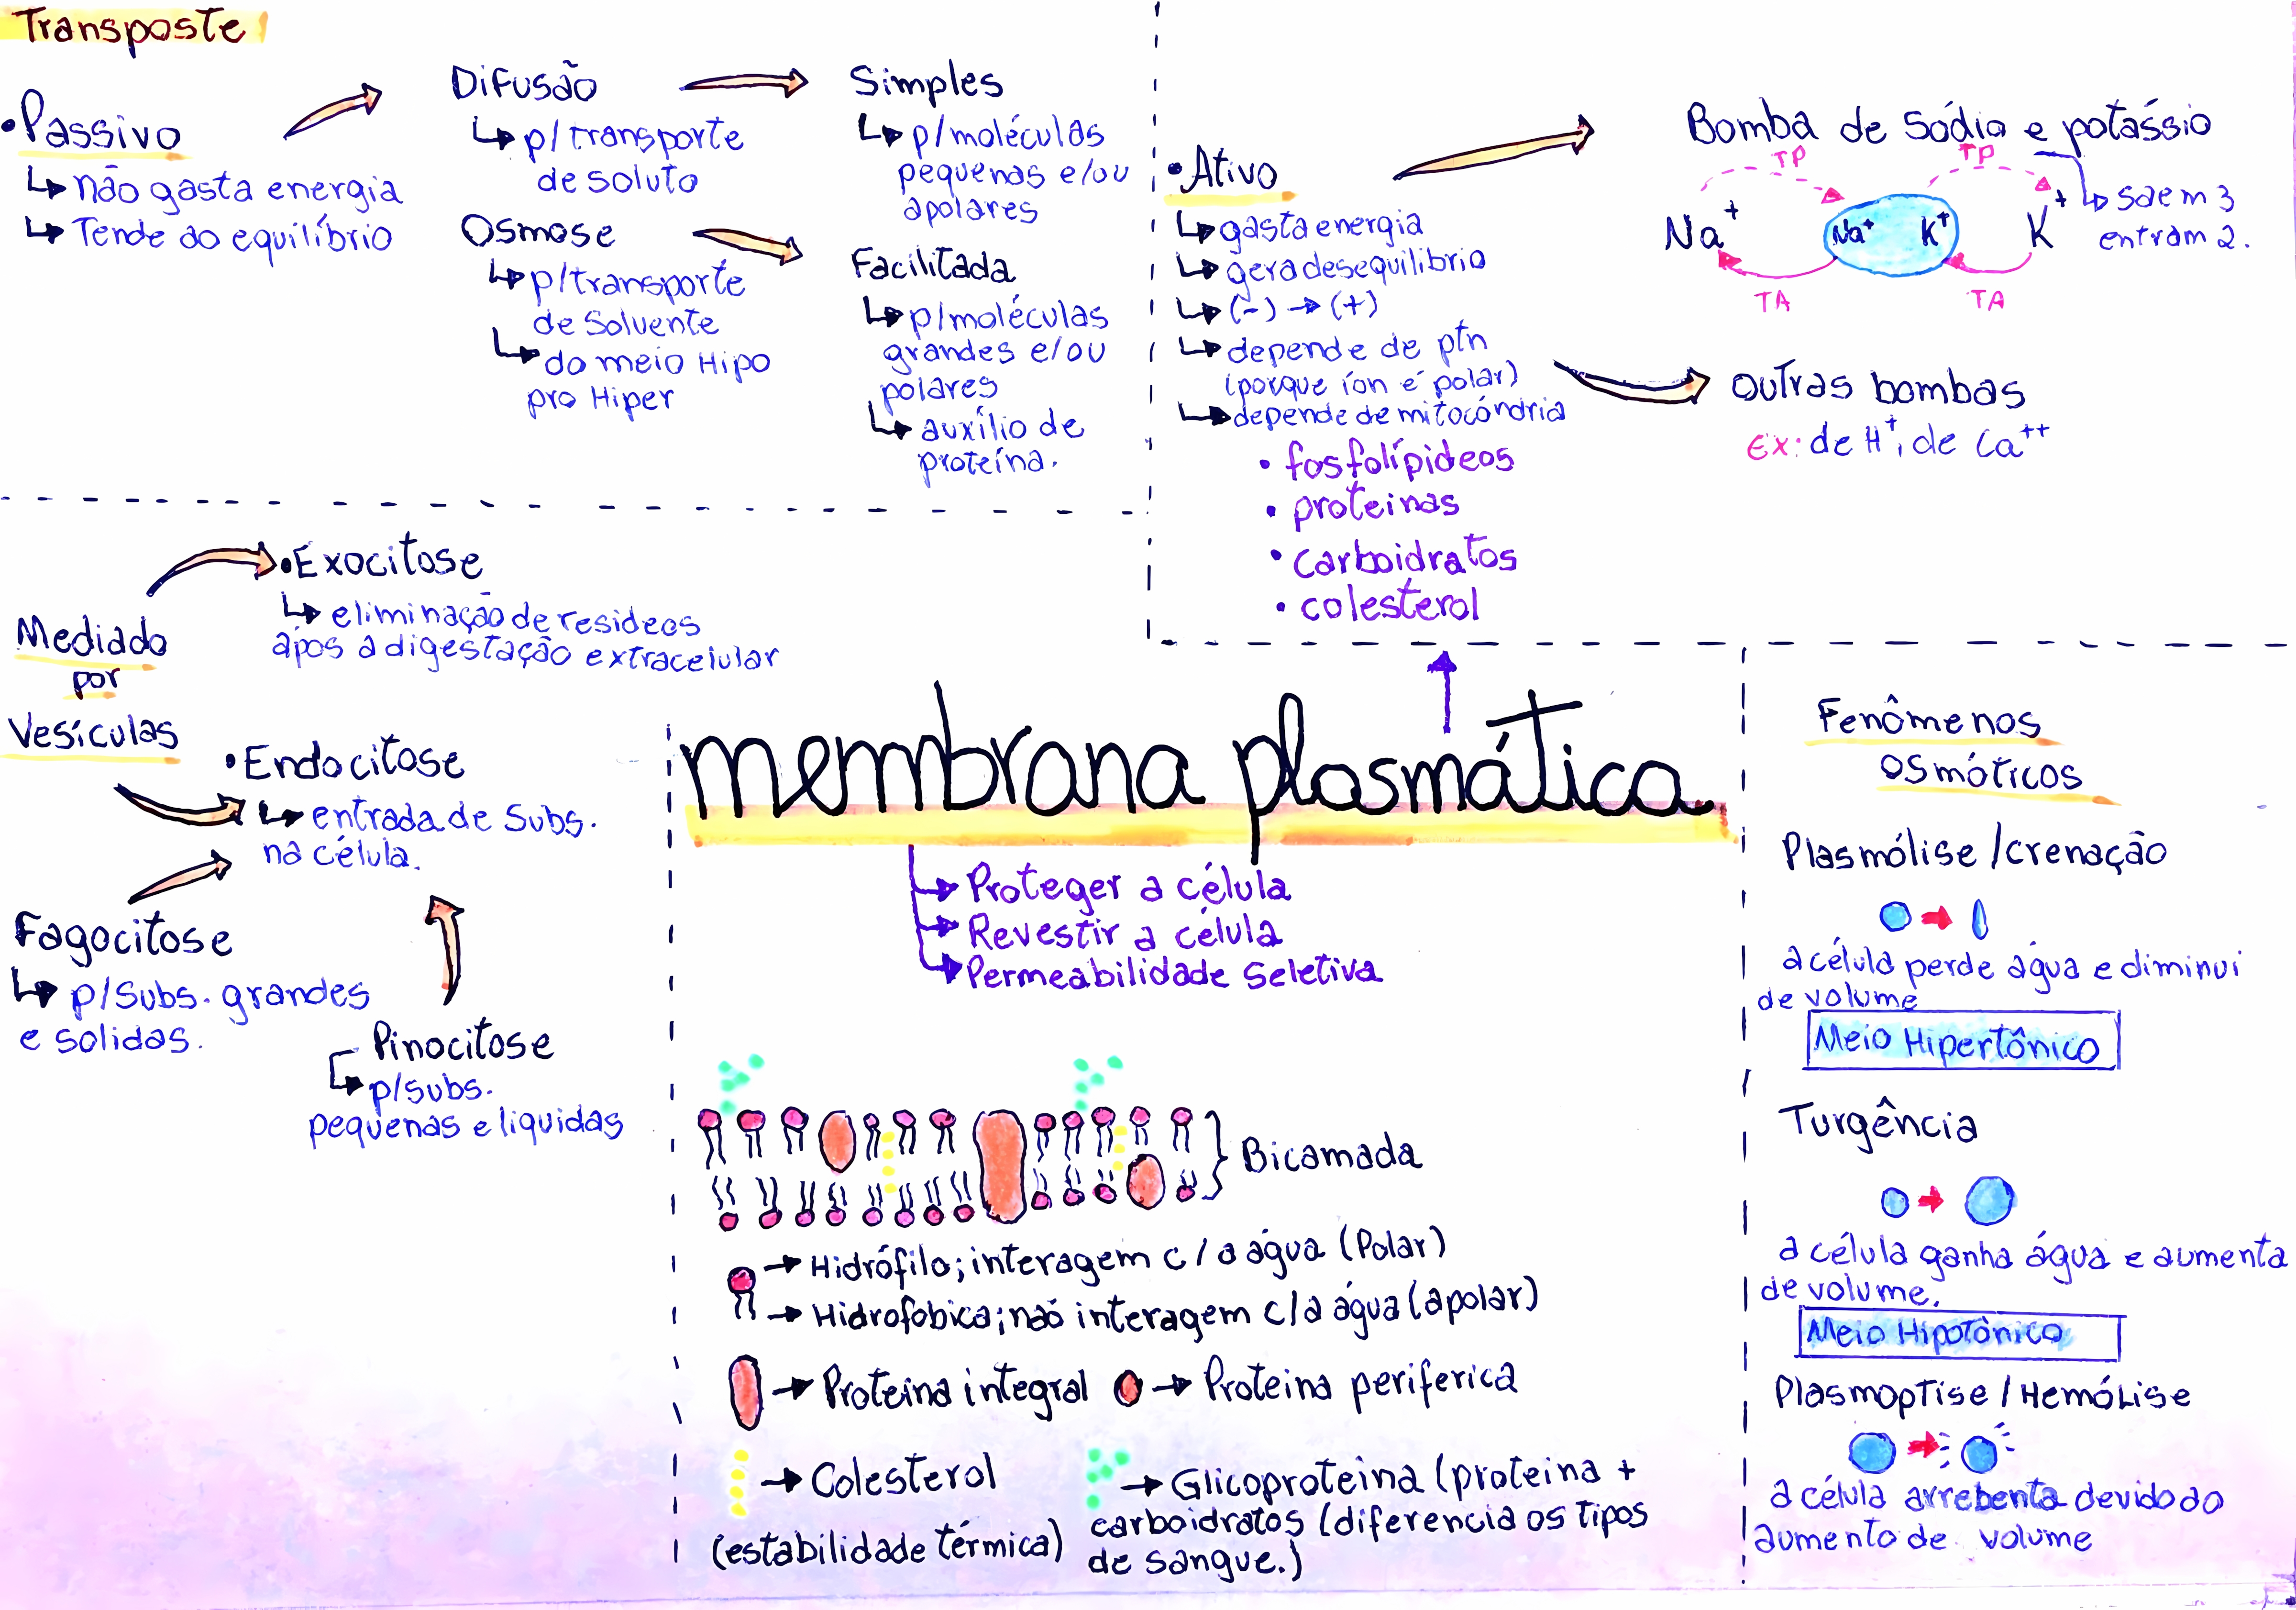 Transposte
•Passivo
↳ não gasta energia
↳ Tende ao equilíbrio
Difusão
↳ p/transporte
de soluto
Osmose
↳ p/transporte
de Solvente
↳ do meio Hipo
pro Hiper
Simples
↳ p/moléculas
pequenas e/ou
apolares
Facilitada
↳ p/moléculas
grandes e/ou
polares
↳ auxílio de
proteína.
•Ativo
↳ gasta energia
↳ gera desequilibrio
↳ (-) → (+)
↳ depende de ptn
(porque íon é polar)
↳ depende de mitocôndria
Bomba de sódio e potássio
TP
TP
Na+
Na+
K+
K+
TA
TA
↳ saem 3
entram 2.
outras bombas
Ex: de H+, de Ca++
• fosfolípideos
• proteinas
• carboidratos
• colesterol
Mediado
por
Vesículas
•Exocitose
↳ eliminação de resideos
após a digestação extracelular
•Endocitose
↳ entrada de Subs.
na célula.
Fagocitose
↳ p/Subs. grandes
e solidas.
Pinocitose
↳ p/subs.
pequenas e liquidas
membrana plasmática
→ Proteger a célula
→ Revestir a célula
→ Permeabilidade Seletiva
Bicamada
→ Hidrófilo; interagem c/a água (Polar)
→ Hidrofobica; não interagem c/a água (apolar)
→ Proteina integral
→ Proteina periferica
→ Colesterol
(estabilidade térmica)
→ Glicoproteina (proteina +
carboidratos (diferencia os tipos
de sangue.)
Fenômenos
osmóticos
Plasmólise /crenação
a célula perde água e diminui
de volume
Meio Hipertônico
Turgência
a célula ganha água e aumenta
de volume.
Meio Hipotônico
Plasmoptise / Hemólise
a célula arrebenta devido ao
aumento de volume